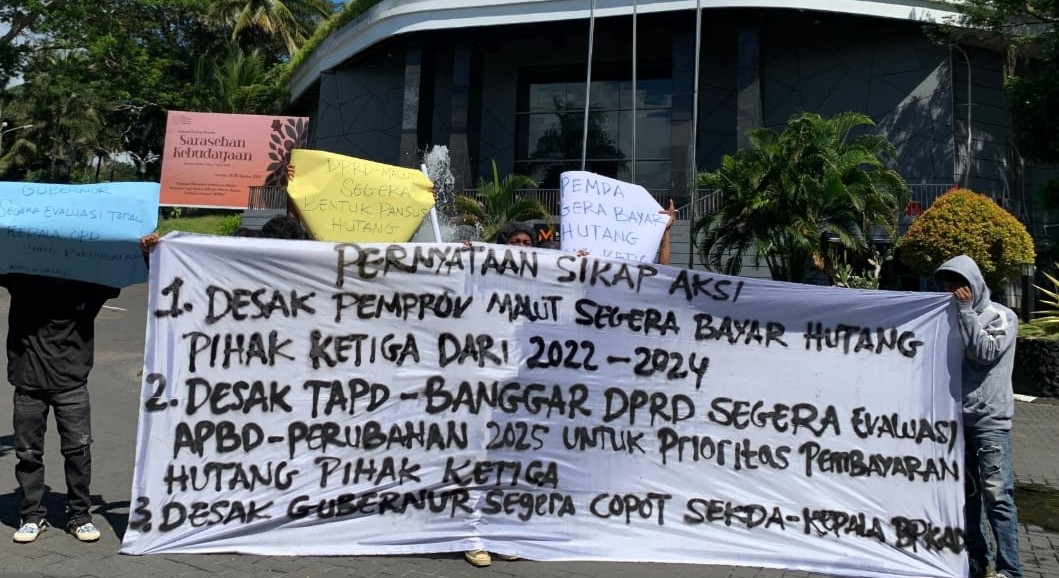 Sarasehan
Kebudayaan
GUBERNUR
SEGERA EVALUASI TOTAL
KEPALA OPD
YANG BERMASALAH
DPRD-MALUT
SEGERA
BENTUK PANSUS
HUTANG
PEMDA
GERA BAYAR
HUTANG
PERNYATAAN SIKAP AKSI
1. DESAK PEMPROV MALUT SEGERA BAYAR HUTANG
PIHAK KETIGA DARI 2022-2024
2. DESAK TAPD-BANGGAR DPRD SEGERA EVALUASI
APBD-PERUBAHAN 2025 UNTUK PRIORITAS PEMBAYARAN
HUTANG PIHAK KETIGA
3. DESAK GUBERNUR SEGERA COPOT SEKDA-KEPALA BPKAD